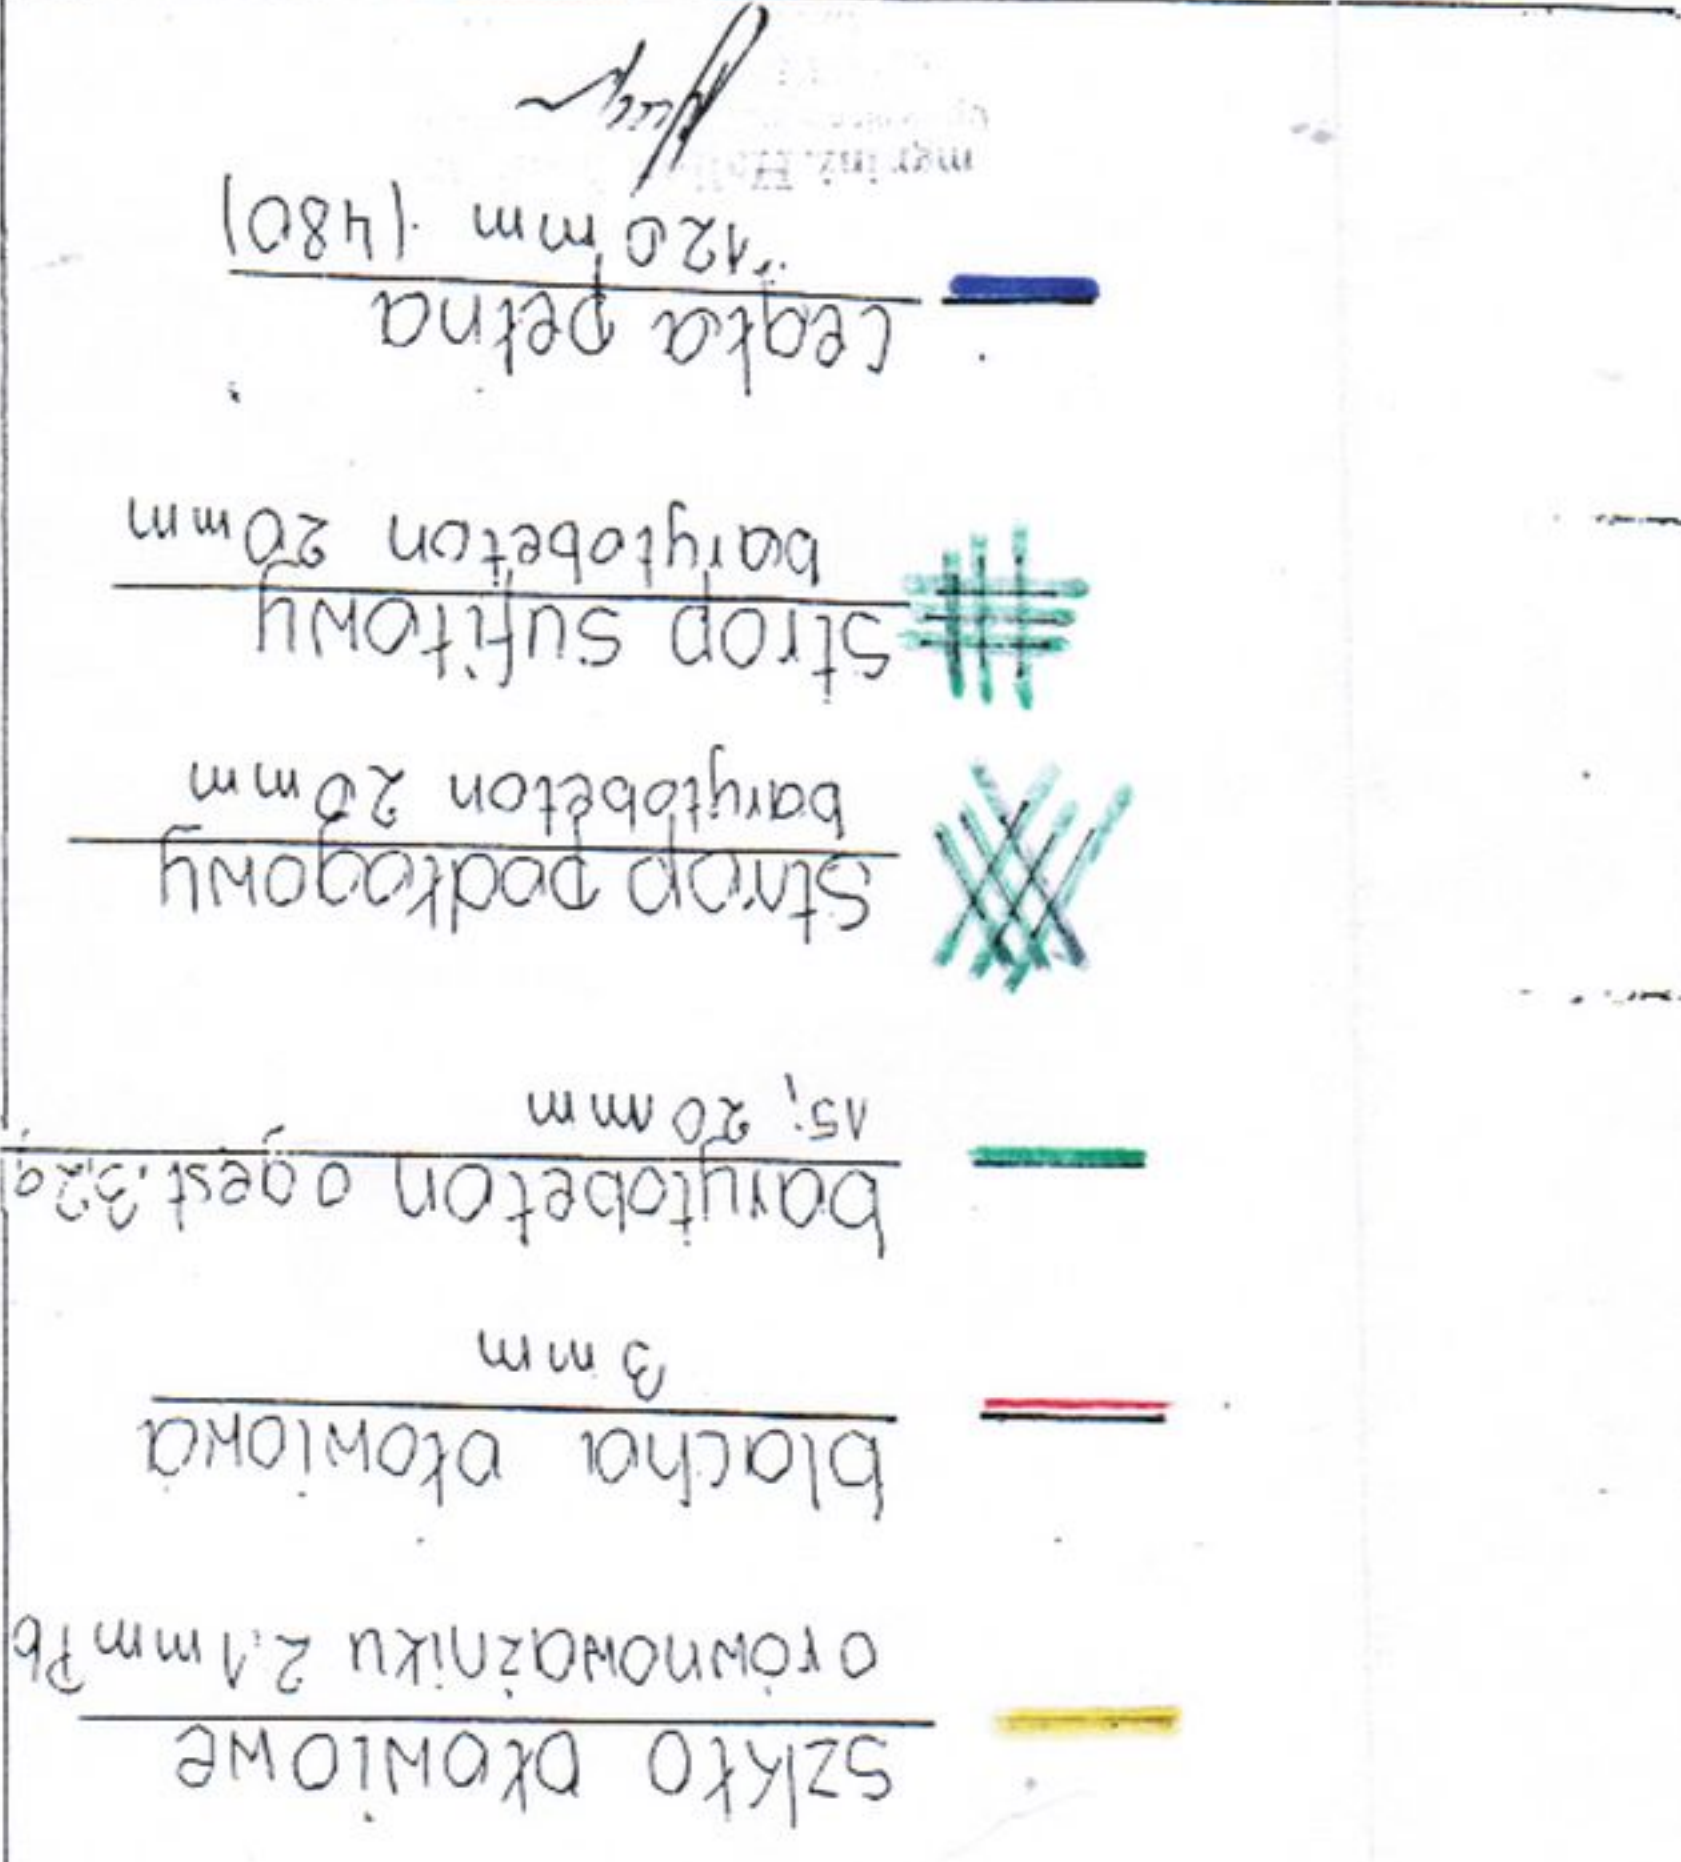 szkło ołowiowe
o równoważniku 2.1 mm Pb
blacha ołowiowa
3 mm
barytobeton o gęst. 3,2g
15; 20 mm
Strop podłogowy
barytobeton 20 mm
Strop sufitowy
barytobeton 20 mm
Cegła pełna
120 mm (480)
mgr inż.